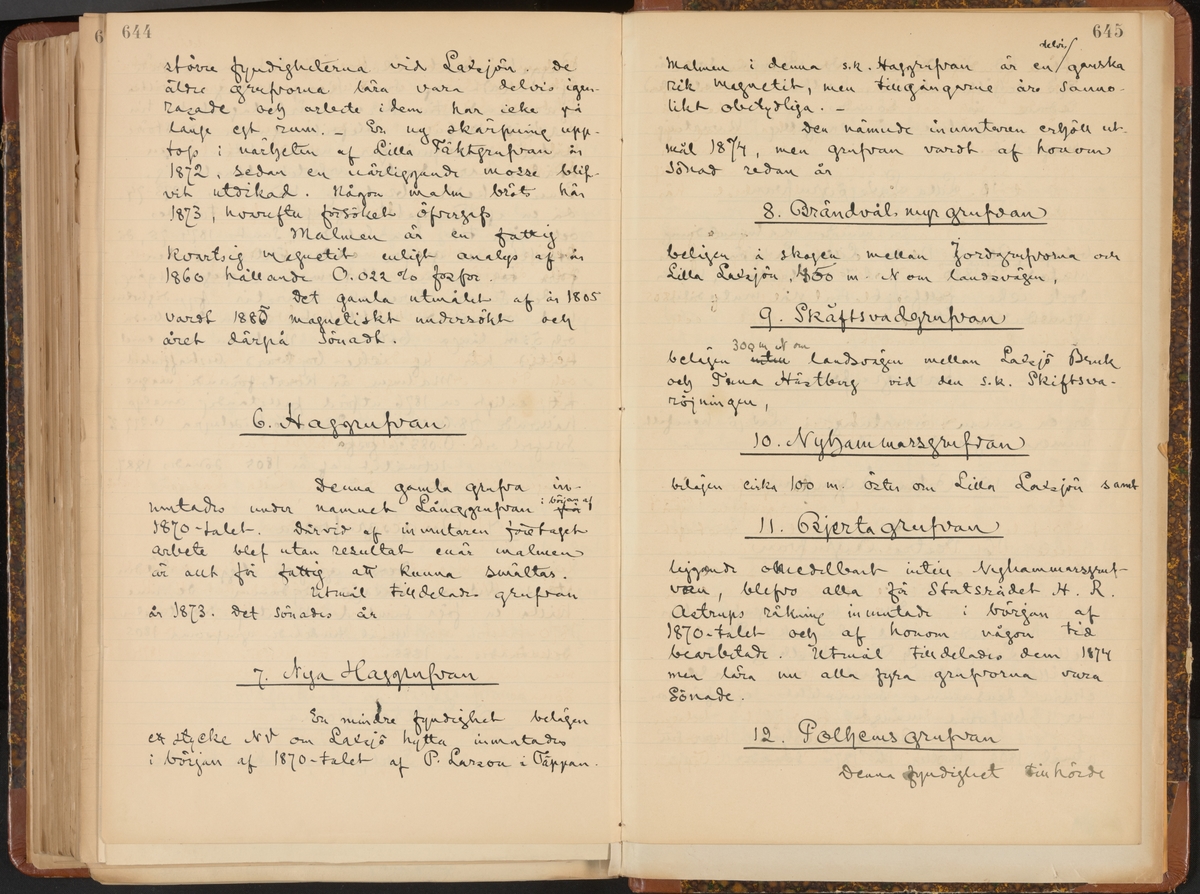 644
större fyndigheterna vid Laxsjön. De
äldre grufvorna lära vara delvis igen-
rasade och arbete i dem har icke på
länge egt rum. En ny skärpning upp-
togs i närheten af Lilla Täktgrufvan år
1872, sedan en närliggande mosse blif-
vit utdikad. Någon malm bröts här
1873, hvarefter försöket öfvergafs
Malmen är en fattig
kvartsig magnetit enligt analys af år
1860 hållande 0.022 % fosfor.
Det gamla utmålet af år 1805
vardt 1885 magnetiskt undersökt och
året därpå sönadt.
6. Haggrufvan
Denna gamla grufva in-
mutades under namnet Långgrufvan i början af
1870-talet. Därvid af inmutaren företaget
arbete blef utan resultat enär malmen
är allt för fattig att kunna smältas.
Utmål tilldelades grufvan
år 1873. Det sönades år
7. Nya Haggrufvan
En mindre fyndighet belägen
ett stycke NV om Laxsjö hytta inmutades
i början af 1870-talet af P. Larson i Täppan.
645
Malmen i denna s.k. Haggrufvan är en delvis ganska
rik magnetit, men tillgångarne äro sanno-
likt obetydliga. –
Den nämnde inmutaren erhöll ut-
mål 1874, men grufvan vardt af honom
sönad redan år
8. Brändvålsmyrgrufvan
belägen å skogen mellan Jordgrufvorna och
Lilla Laxsjön, 800 m N om landsvägen,
9. Skäftsvadgrufvan
belägen 300 m N om landsvägen mellan Laxsjö Bruk
och Tuna Hästberg vid den s.k. Skiftsva-
röjningen,
10. Nyhammarsgrufvan
belägen cirka 100 m. öster om Lilla Laxsjön samt
11. Gjertagrufvan
liggande omedelbart intill Nyhammarsgruf-
van, blefvo alla för Statsrådet H. R.
Astrups räkning inmutade i början af
1870-talet och af honom någon tid
bearbetade. Utmål tilldelades dem 1874
men lära nu alla fyra grufvorna vara
sönade.
12. Polhemsgrufvan
Denna fyndighet tillhörde